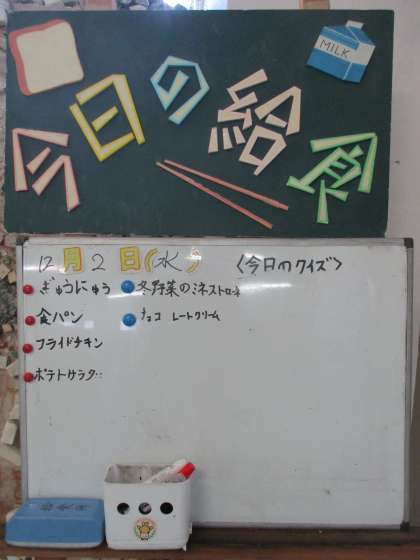 MILK
今日の給食
12月2日(水) <今日のクイズ>
ぎゅうにゅう 冬野菜のミネストローネ
食パン チョコ レートクリーム
フライドチキン
ポテトサラダ